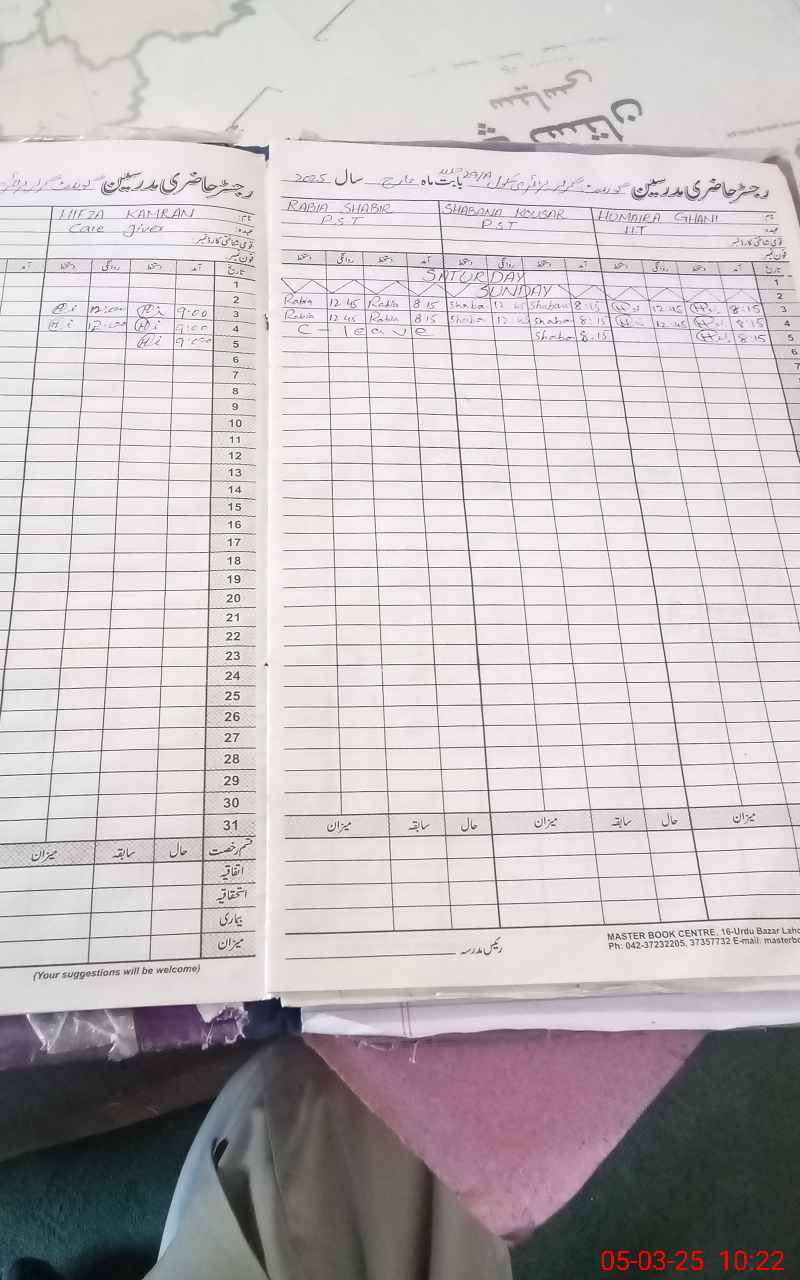 پاکستان
سیاسی
رجسٹر حاضری مدرسین
رجسٹر حاضری مدرسین گورنمنٹ گرلز پرائمری سکول 29/A بابت ماہ مارچ سال 2025
HIFZA KAMRAN
Care giver
نام:
عہدہ:
قومی شناختی کارڈ نمبر
فون نمبر:
RABIA SHABIR SHABANA KOUSAR HUMAIRA GHANI نام:
P.S.T P.S.T عہدہ:
قومی شناختی کارڈ نمبر
فون نمبر:
آمد دستخط روانگی دستخط آمد تاریخ
دستخط روانگی دستخط آمد دستخط روانگی دستخط آمد دستخط روانگی دستخط آمد تاریخ
1
2
Hi 12:00 Hi 9:00 3
Hi 12:00 Hi 9:00 4
Hi 9:00 5
6
7
8
9
10
11
12
13
14
15
16
17
18
19
20
21
22
23
24
25
26
27
28
29
30
31
SATURDAY 1
SUNDAY 2
Rabia 12 45 Rabia 8 15 Shaba 12 45 Shaban 8:15 12 45 8:15 3
Rabia 12 45 Rabia 8 15 Shaba 12 45 Shaba 8:15 12 45 8:15 4
C - leave Shaba 8.15 8:15 5
6
7
میزان سابقہ حال قسم رخصت
اتفاقیہ
استحقاقیہ
بیماری
میزان
(Your suggestions will be welcome)
میزان سابقہ حال میزان سابقہ حال میزان
رئیس مدرسہ
MASTER BOOK CENTRE, 16-Urdu Bazar Laho
Ph: 042-37232205, 37357732 E-mail: masterbo
05-03-25 10:22